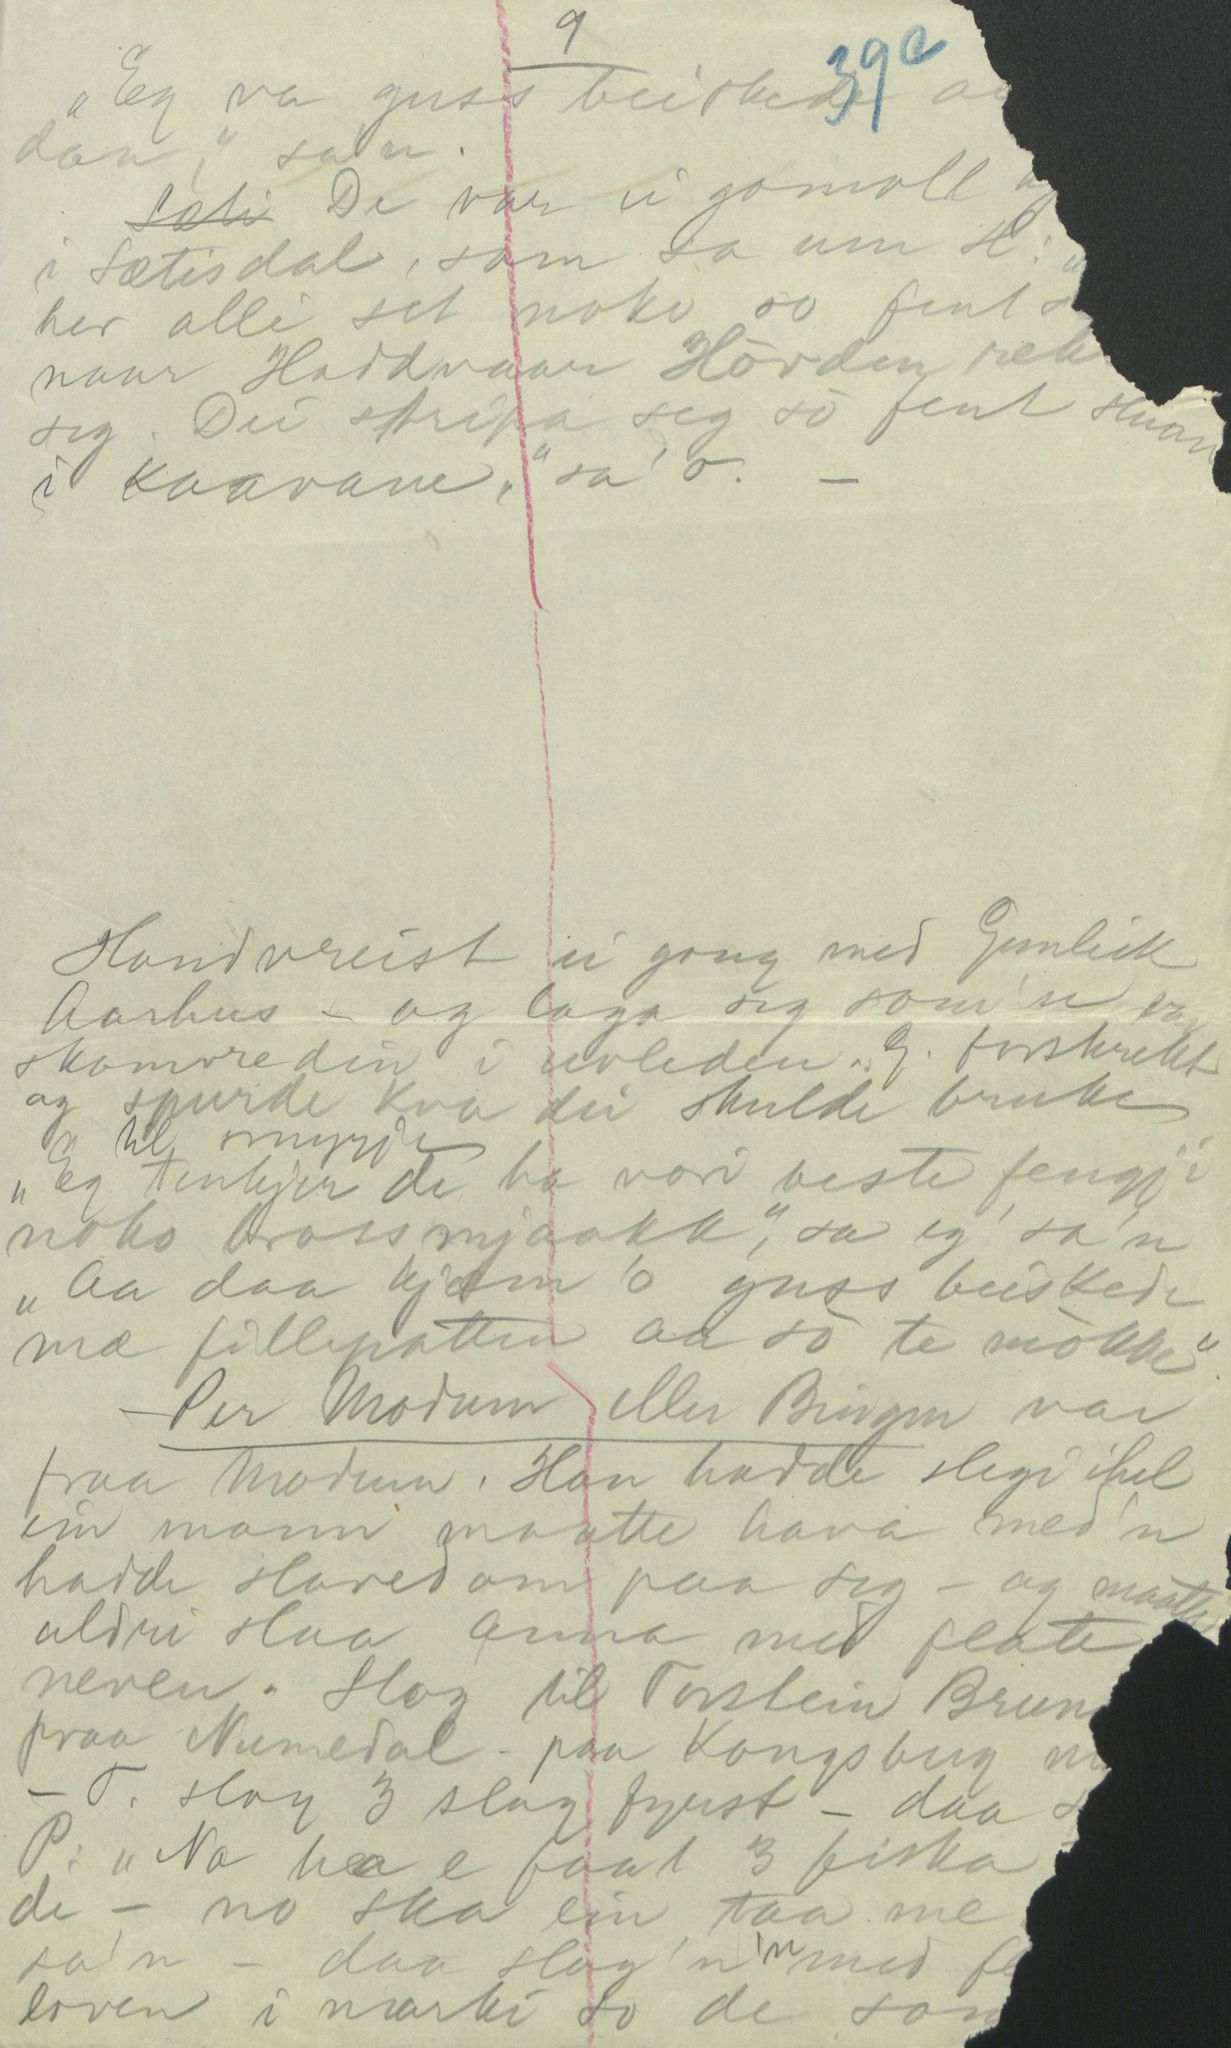 9
39a
"Eg va guss beiskede aa
dan," sa'n.
Sæti De var ei gomoll
i Sætisdal, som sa um H: "
her alli set noko so fent s
naar Haddvaar Hövden rek
seg. Dei stripa seg so fent
i kaavane," sa'o. —
Handvreist ei gong med Gunleik
Aarhus – og laga seg som'n va
skamvreden i uvleden. G. forskrekt
og spurde kva dei skulde bruke
til smyrje
"Eg tenkjer de ha vori beste fengji
noko brossmjaakk", sa eg' sa'n
"Aa daa kjem'o guss beiskede
mæ fillepatten aa so te mökke"
— Per Modum eller Bingen var
fraa Modum. Han hadde slegi ihel
ein mann maatte hava med'n
hadde slavedom paa seg – og maatte
aldri slaa anna med flate
neven. Slog til Torstein Brun
fraa Numedal – paa Kongsberg
– T. slog 3 slag fyrst – daa s
P: "No hea e faat 3 fiska
de – no ska ein taa me
sa'n – daa slog'n'n med fl
loven i narki so de som